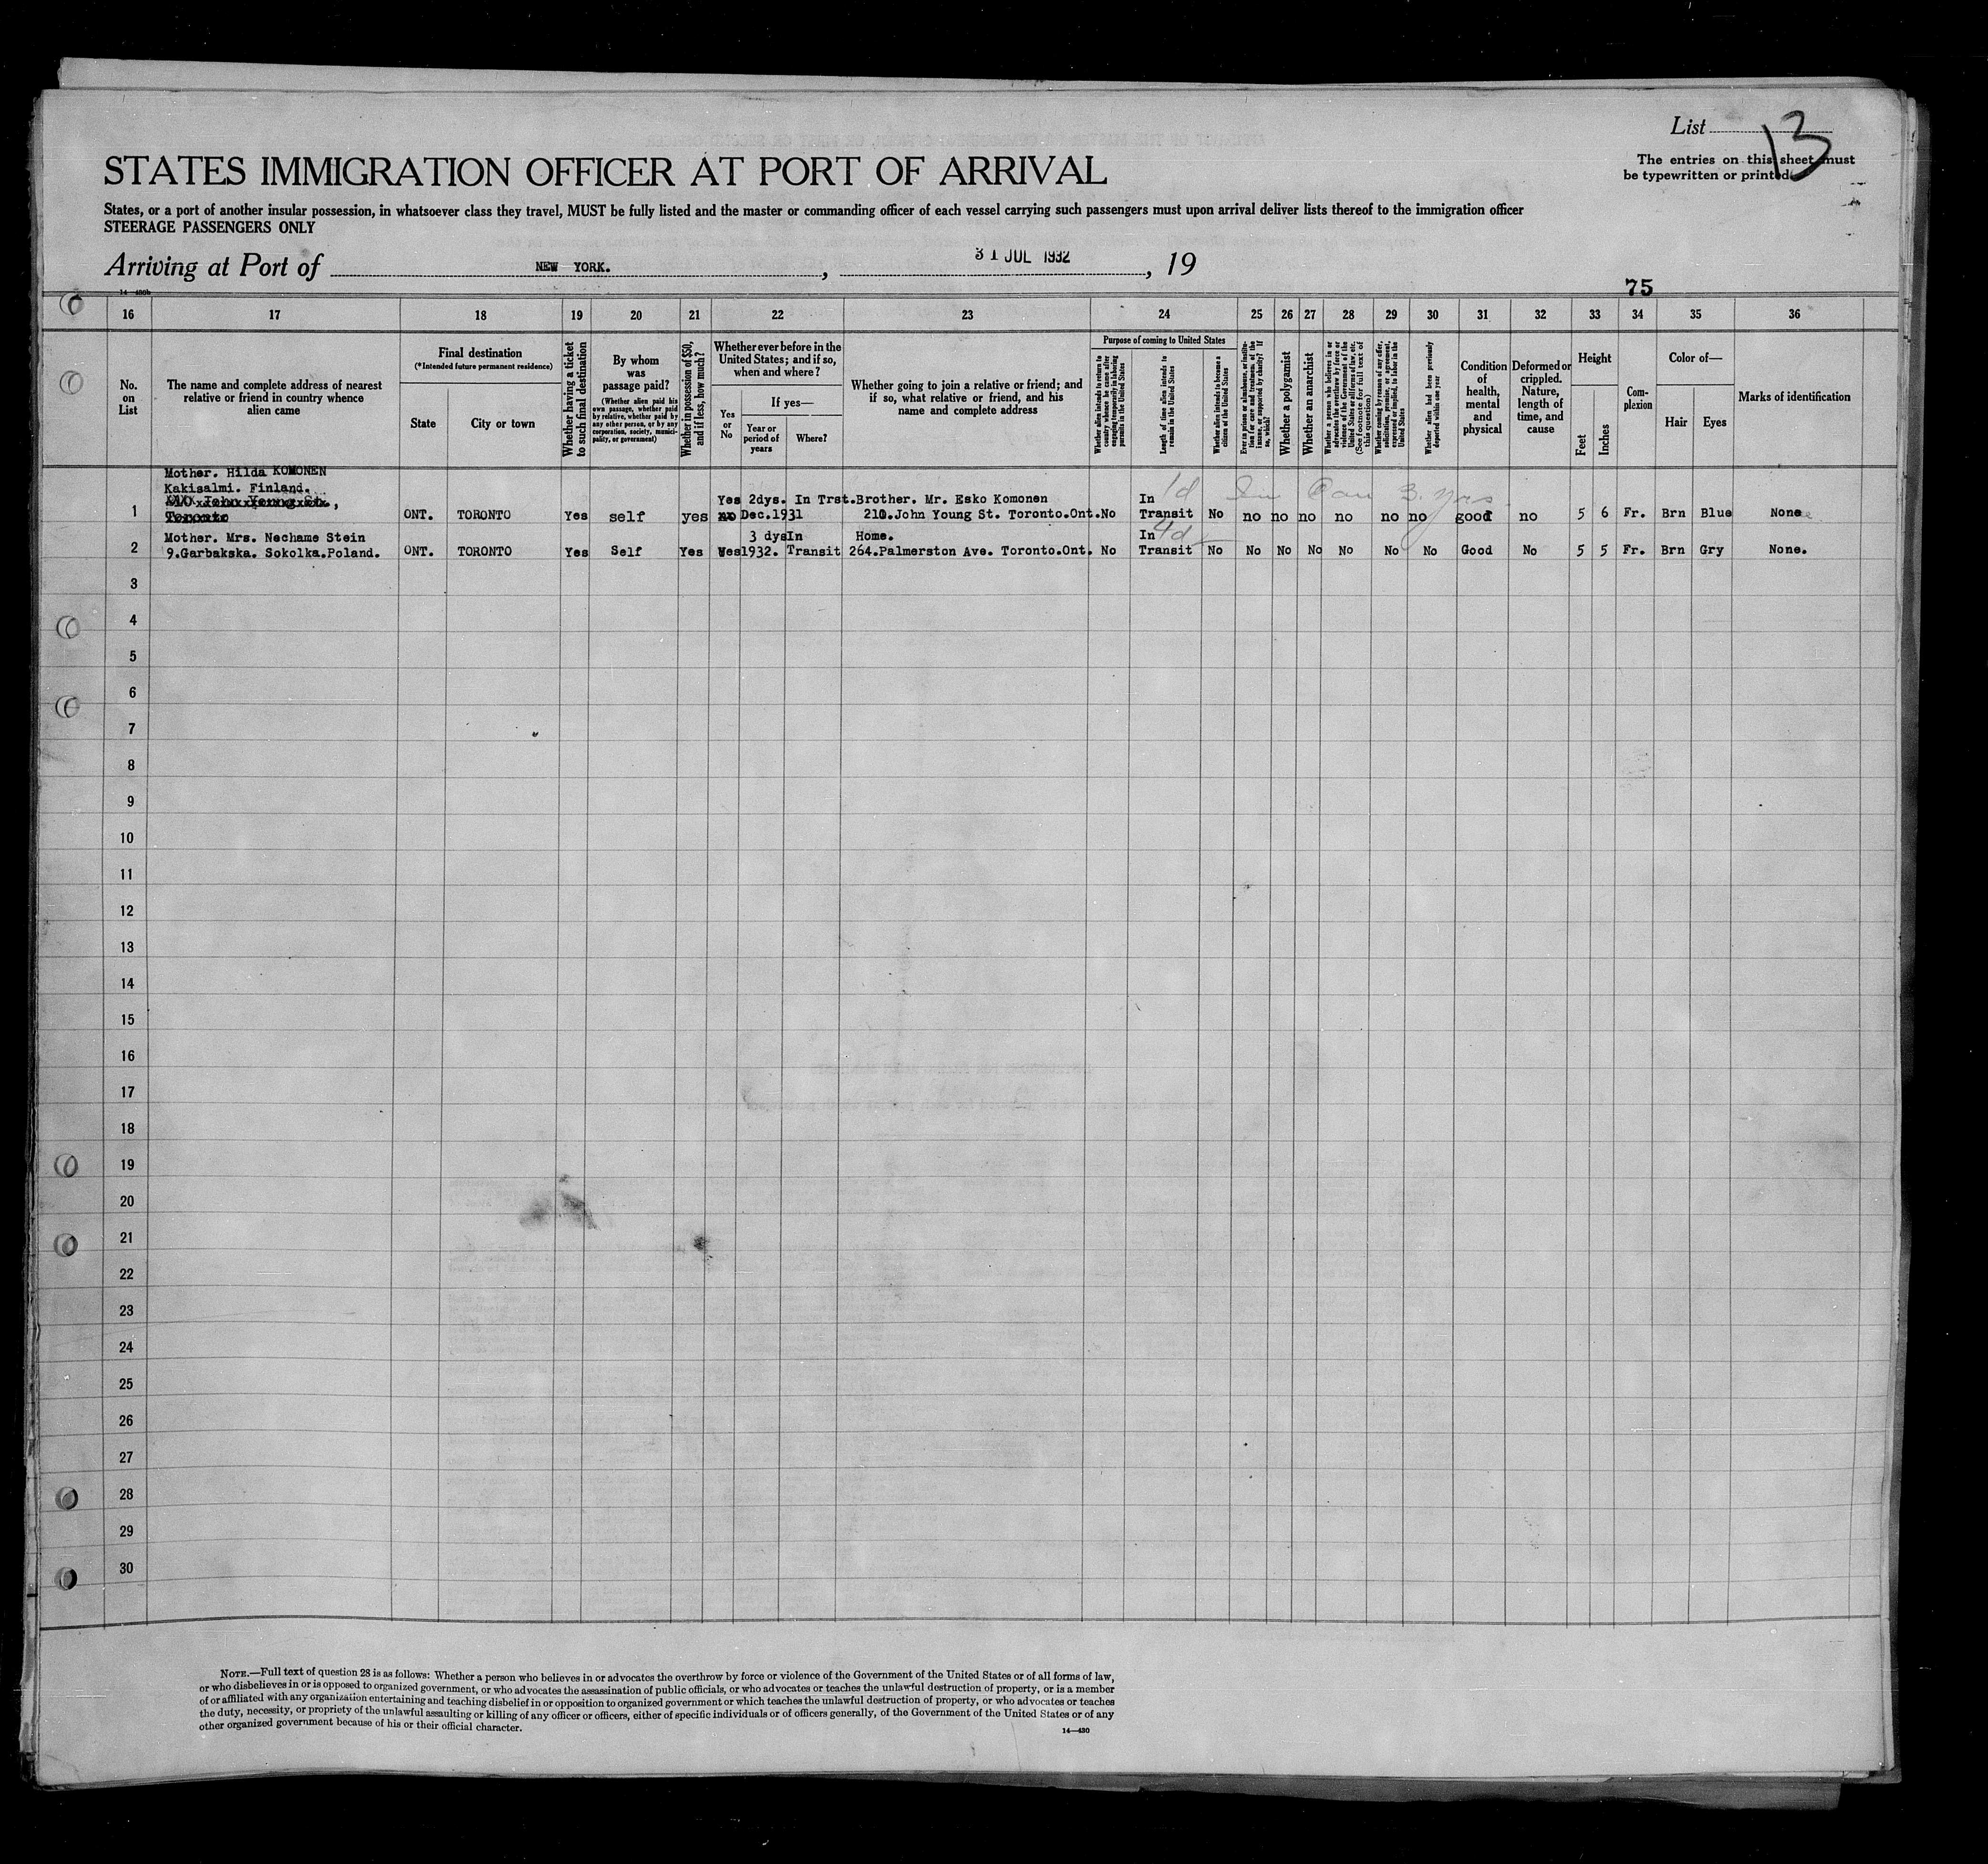 List 13
The entries on this sheet must
be typewritten or printed
STATES IMMIGRATION OFFICER AT PORT OF ARRIVAL
States, or a port of another insular possession, in whatsoever class they travel, MUST be fully listed and the master or commanding officer of each vessel carrying such passengers must upon arrival deliver lists thereof to the immigration officer
STEERAGE PASSENGERS ONLY
Arriving at Port of NEW YORK. , 31 JUL 1932 , 19
75
16 17 18 19 20 21 22 23 24 25 26 27 28 29 30 31 32 33 34 35 36
No. on List
The name and complete address of nearest relative or friend in country whence alien came
Final destination
(*Intended future permanent residence)
State
City or town
Whether having a ticket to such final destination
By whom was passage paid?
(Whether alien paid his own passage, whether paid by relative, whether paid by any other person, or by any corporation, society, municipality, or government)
Whether in possession of $50, and if less, how much?
Whether ever before in the United States; and if so, when and where?
Yes or No
If yes—
Year or period of years
Where?
Whether going to join a relative or friend; and if so, what relative or friend, and his name and complete address
Purpose of coming to United States
Whether alien intends to return to country whence he came after engaging temporarily in laboring pursuits in the United States
Length of time alien intends to remain in the United States
Whether alien intends to become a citizen of the United States
Ever in prison or almshouse, or institution for care and treatment of the insane, or supported by charity? If so, which?
Whether a polygamist
Whether an anarchist
Whether a person who believes in or advocates the overthrow by force or violence of the Government of the United States or all forms of law, etc. (See footnote for full text of this question)
Whether coming by reason of any offer, solicitation, promise, or agreement, expressed or implied, to labor in the United States
Whether alien had been previously deported within one year
Condition of health, mental and physical
Deformed or crippled. Nature, length of time, and cause
Height
Feet
Inches
Complexion
Color of—
Hair
Eyes
Marks of identification
Mother. Hilda KOMONEN
Kakisalmi. Finland.
210 John Young St.,
Toronto
1 ONT. TORONTO Yes self yes Yes no 2dys. Dec.1931 In Trst. Brother. Mr. Esko Komonen 210.John Young St. Toronto.Ont. No In Transit 1d No In Can 3 yrs no no no no no no good no 5 6 Fr. Brn Blue None
Mother. Mrs. Nechame Stein
2 9.Garbakska. Sokolka.Poland. ONT. TORONTO Yes Self Yes Yes 3 dys 1932. In Transit Home. 264.Palmerston Ave. Toronto.Ont. No In Transit 4d No No No No No No No Good No 5 5 Fr. Brn Gry None.
3
4
5
6
7
8
9
10
11
12
13
14
15
16
17
18
19
20
21
22
23
24
25
26
27
28
29
30
NOTE.—Full text of question 28 is as follows: Whether a person who believes in or advocates the overthrow by force or violence of the Government of the United States or of all forms of law,
or who disbelieves in or is opposed to organized government, or who advocates the assassination of public officials, or who advocates or teaches the unlawful destruction of property, or is a member
of or affiliated with any organization entertaining and teaching disbelief in or opposition to organized government or which teaches the unlawful destruction of property, or who advocates or teaches
the duty, necessity, or propriety of the unlawful assaulting or killing of any officer or officers, either of specific individuals or of officers generally, of the Government of the United States or of any
other organized government because of his or their official character.
14—430